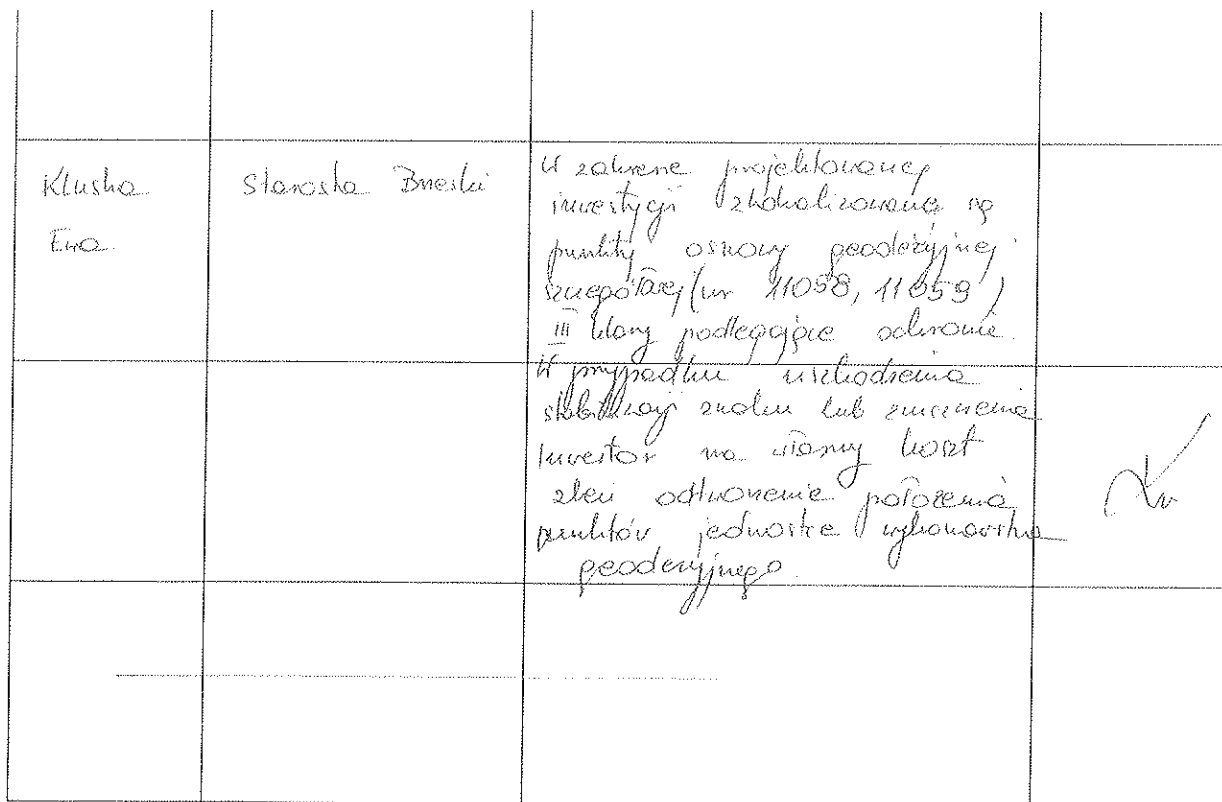 Kluska
Ewa
Starosta Brzeski
W zakresie projektowanej
inwestycji zlokalizowane są
punkty osnowy geodezyjnej
szczegółowej (nr 11058, 11059)
III klasy podlegające ochronie.
W przypadku uszkodzenia
stabilizacji znaku lub zniszczenia
Inwestor na własny koszt
zleci odtworzenie położenia
punktów jednostce wykonawstwa
geodezyjnego.